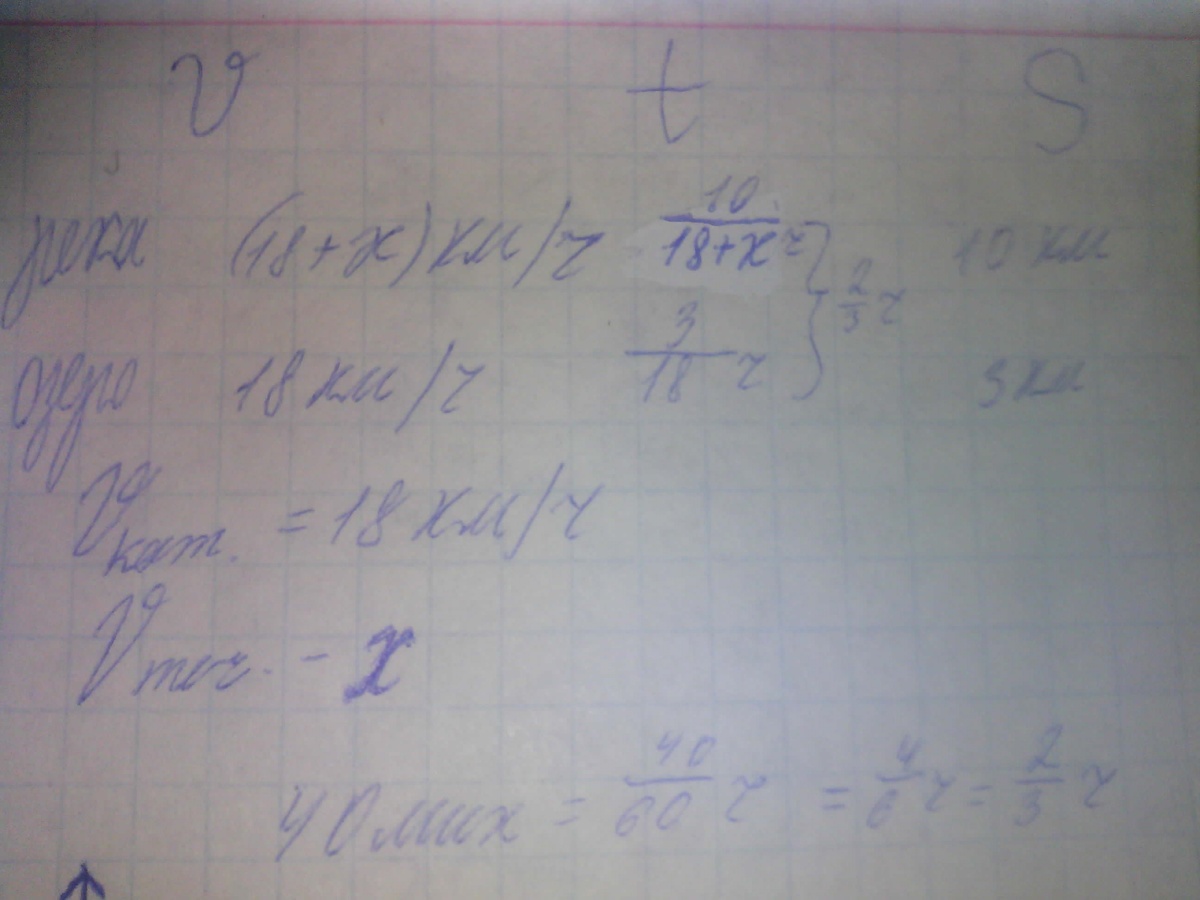 V t S
река (18+x) км/ч 10/18+x ч 10 км
2/3 ч
озеро 18 км/ч 3/18 ч 3 км
Vкат. = 18 км/ч
Vтеч. - x
40 мин = 40/60 ч = 4/6 ч = 2/3 ч